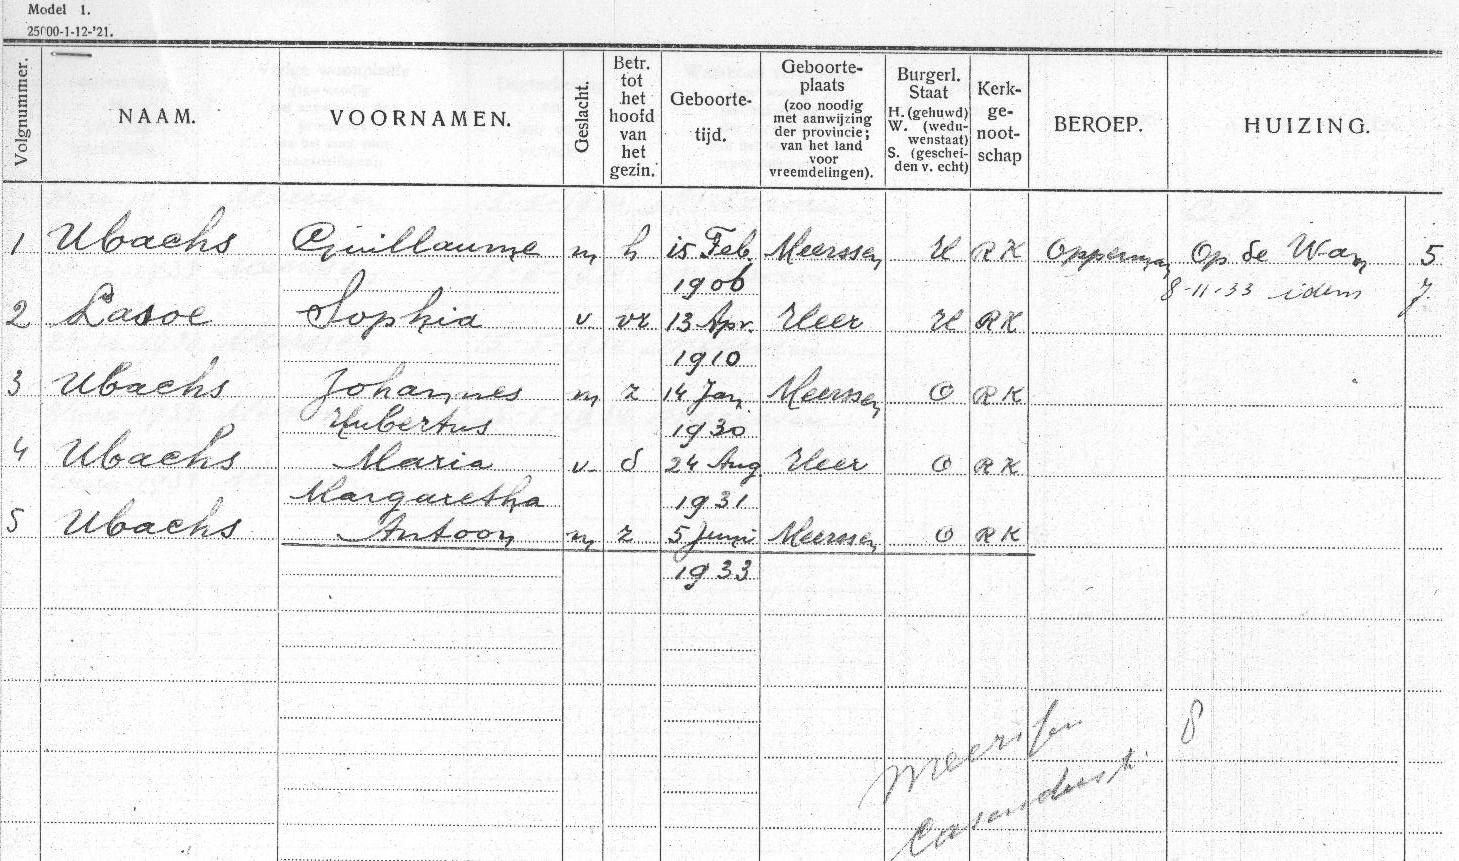 Model 1.
25000-1-12-'21.
Volgnummer.
NAAM.
VOORNAMEN.
Geslacht.
Betr.
tot
het
hoofd
van
het
gezin.
Geboorte-
tijd.
Geboorte-
plaats
(zoo noodig
met aanwijzing
der provincie;
van het land
voor
vreemdelingen).
Burgerl.
Staat
H. (gehuwd)
W. (wedu-
wenstaat)
S. (geschei-
den v. echt)
Kerk-
ge-
noot-
schap
BEROEP.
HUIZING.
1 Ubachs Guillaume m h 15 Feb. Meerssen H RK Opperman Op de Wan 5
1906 8-11-33 idem 7.
2 Lasoe Sophia v. vr 13 Apr. Heer H RK
1910
3 Ubachs Johannes m z 14 Jan. Meerssen O RK
Hubertus 1930
4 Ubachs Maria v. d 24 Aug Heer O RK
Margaretha 1931
5 Ubachs Antoon m z 5 Juni Meerssen O RK
1933
Meerssen 8